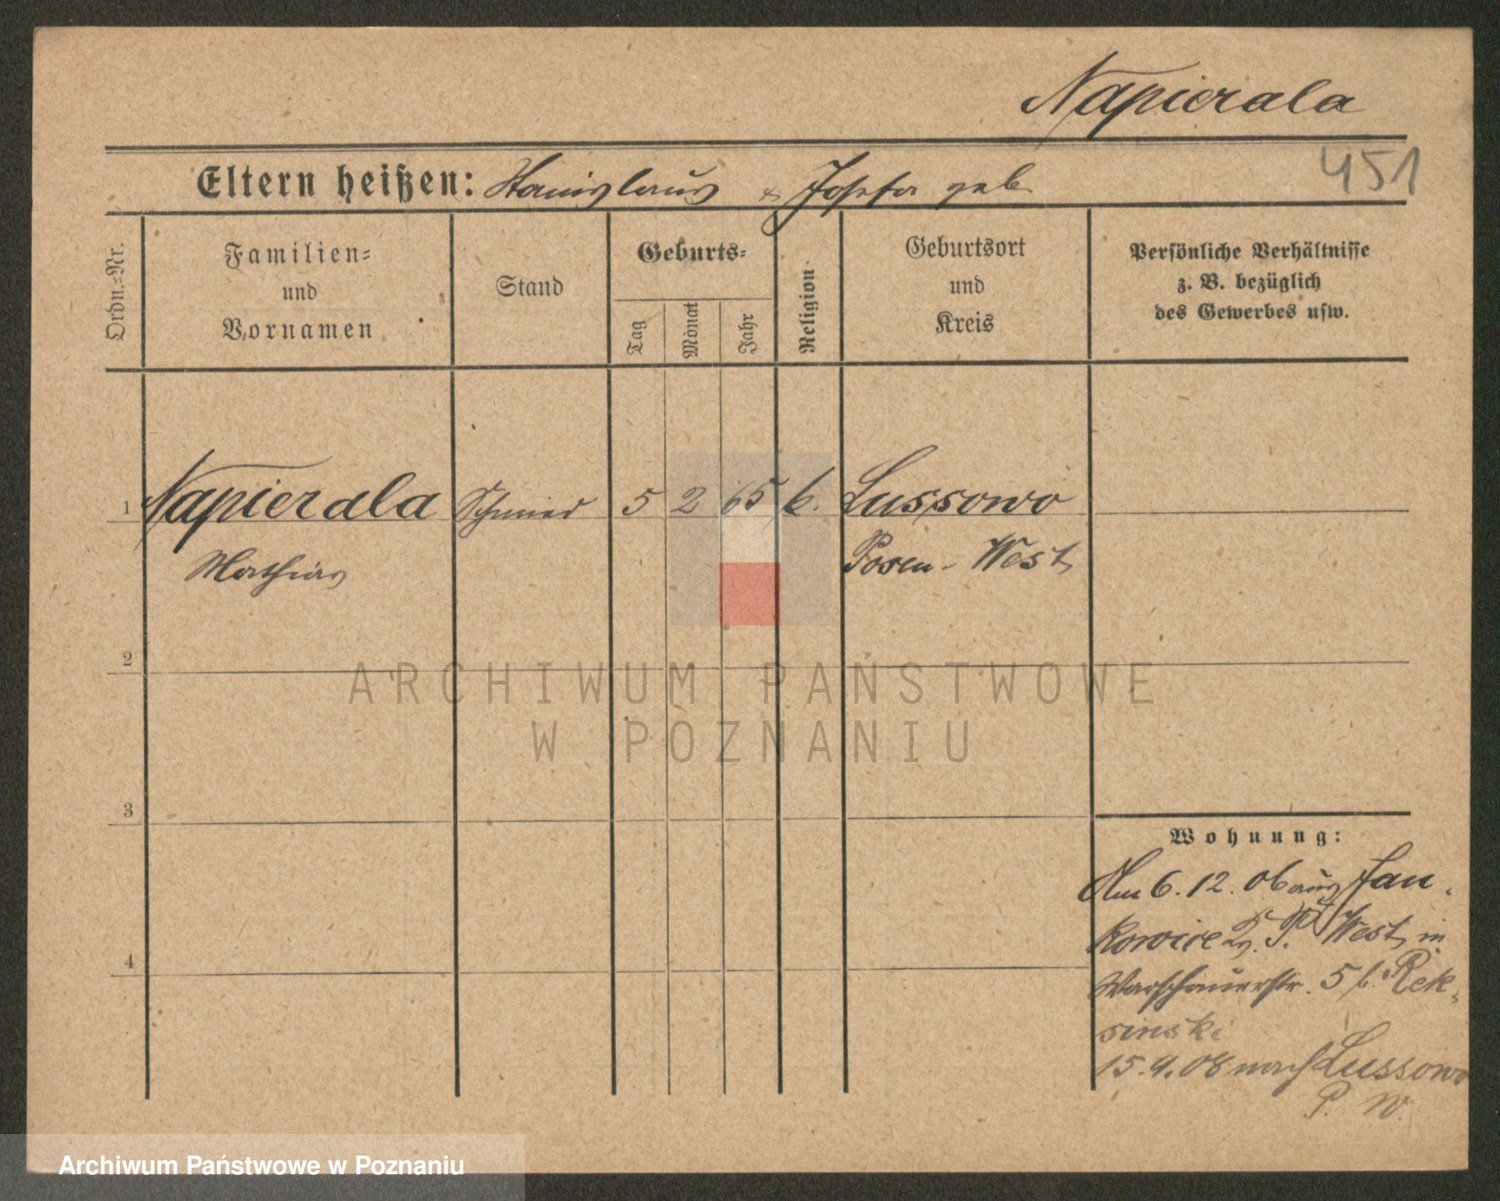 Napierala
451
Eltern heißen: Stanislaus & Josefa geb.
Ordn.-Nr.
Familien-
und
Vornamen
Stand
Geburts-
Tag
Monat
Jahr
Religion
Geburtsort
und
Kreis
Persönliche Verhältnisse
z. B. bezüglich
des Gewerbes usw.
1 Napierala Schmied 5 2 65 k. Lussowo
Mathias Posen-West
2
ARCHIWUM PAŃSTWOWE
W POZNANIU
3
Wohnung:
Am 6.12.06 aus Jan-
kowice Kr. P. West, in
Warschauerstr. 5 b. Rek-
sinski
4
15.9.08 nach Lussowo
P. W.
Archiwum Państwowe w Poznaniu